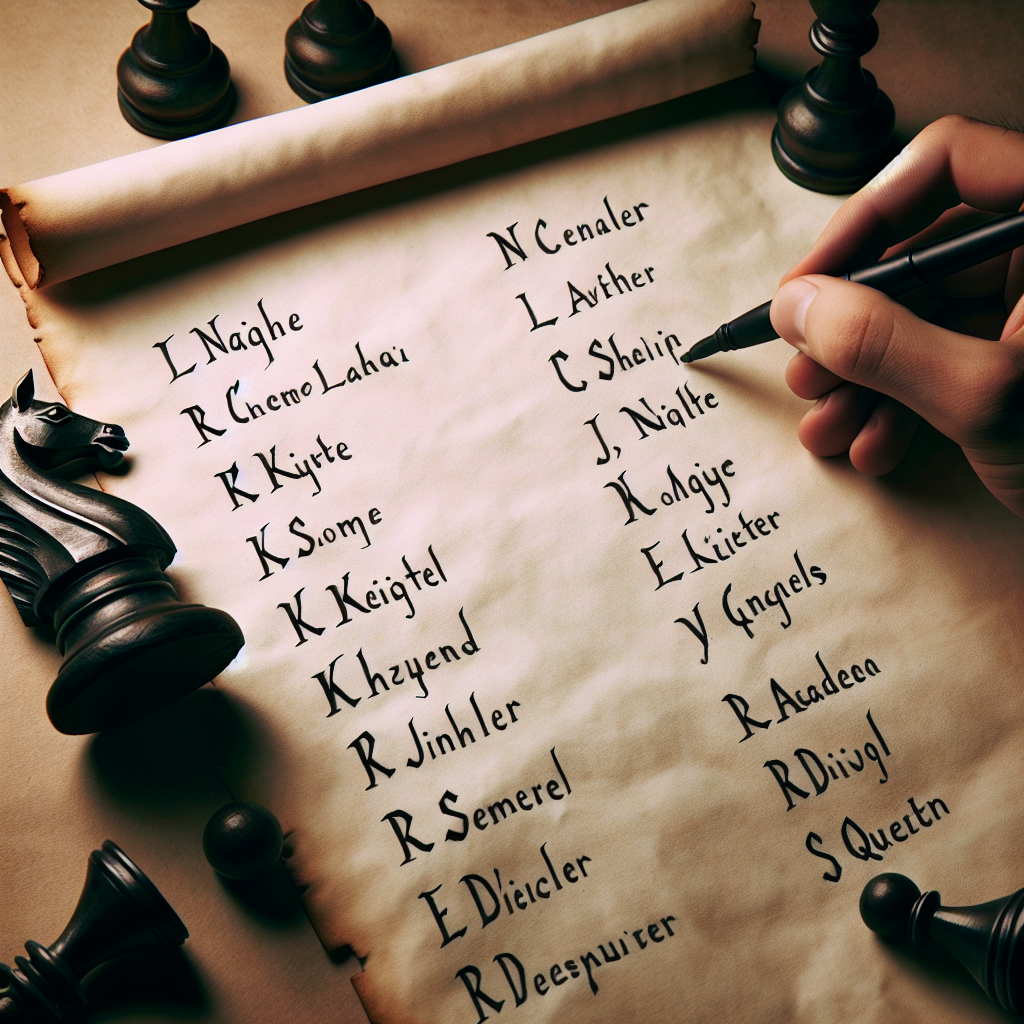 L Naighe
R Cnemo Lahai
K Kijrte
K Siomy e
K Keigtel
K hzyend
R Jinhler
R Semerel
E D'ieicler
R Deespuiter
N Cenaler
L Avther
C Shelip
J, Nialte
K olgiye
E kiieter
y Gngels
R Acadecn
R Diivgl
S Quertn